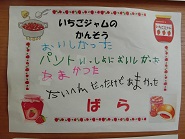 いちごジャムの
かんそう
おいしかった
パンといっしょにおいしかった
たまかつた
だいへんだったけどあまかった
ばら